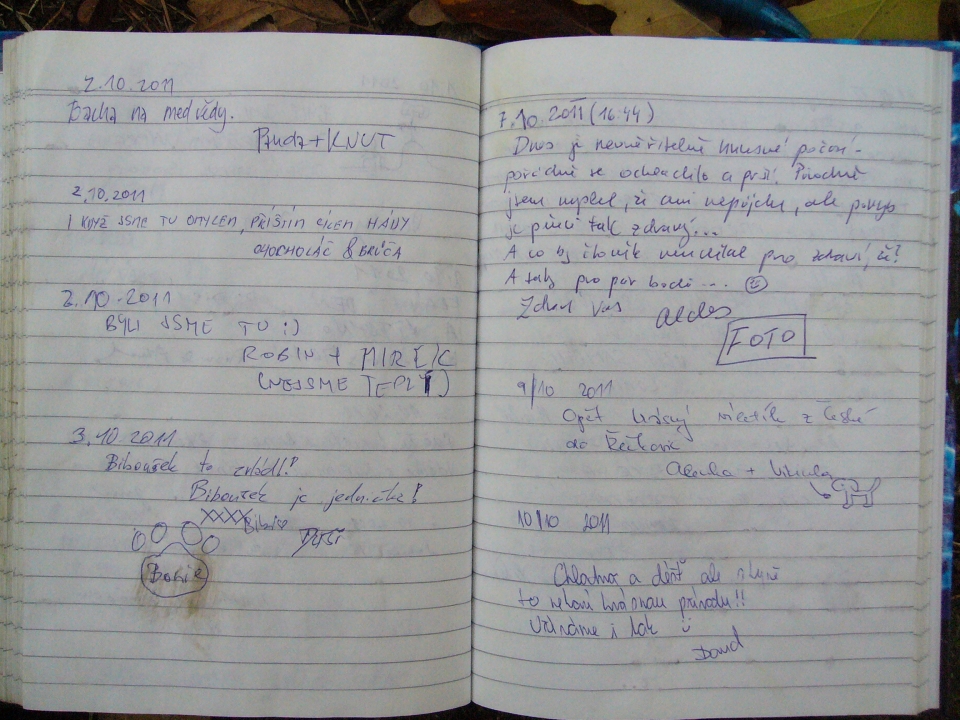 2.10.2011
Bacha na medvědy.
Panda + KNUT
2.10.2011
I KDYŽ JSME TU OMYLEM, PŘÍŠTÍM CÍLEM HÁDY
CHOCHOLÁČ & BRÚČA
2.10.2011
BYLI JSME TU :)
ROBIN + MIREK
(NEJSME TEPLÝ)
3.10.2011
Biboušek to zvládl!
Biboušek je jednička!
XXXX Bibi
7.10.2011 (16:44)
Dnes je neuvěřitelně hnusné počasí -
pořádně se ochladilo a prší. Původně
jsem myslel, že ani nepůjdu, ale pohyb
je přeci tak zdravý...
A co by člověk neudělal pro zdraví, že?
A taky pro pár bodů...
Zdraví Vás
FOTO
9/10 2011
Opět krásný z České
do Řečkovic
+
10/10 2011
Chladno a déšť ale
to nekazí krásnou přírodu!!
i tak
David